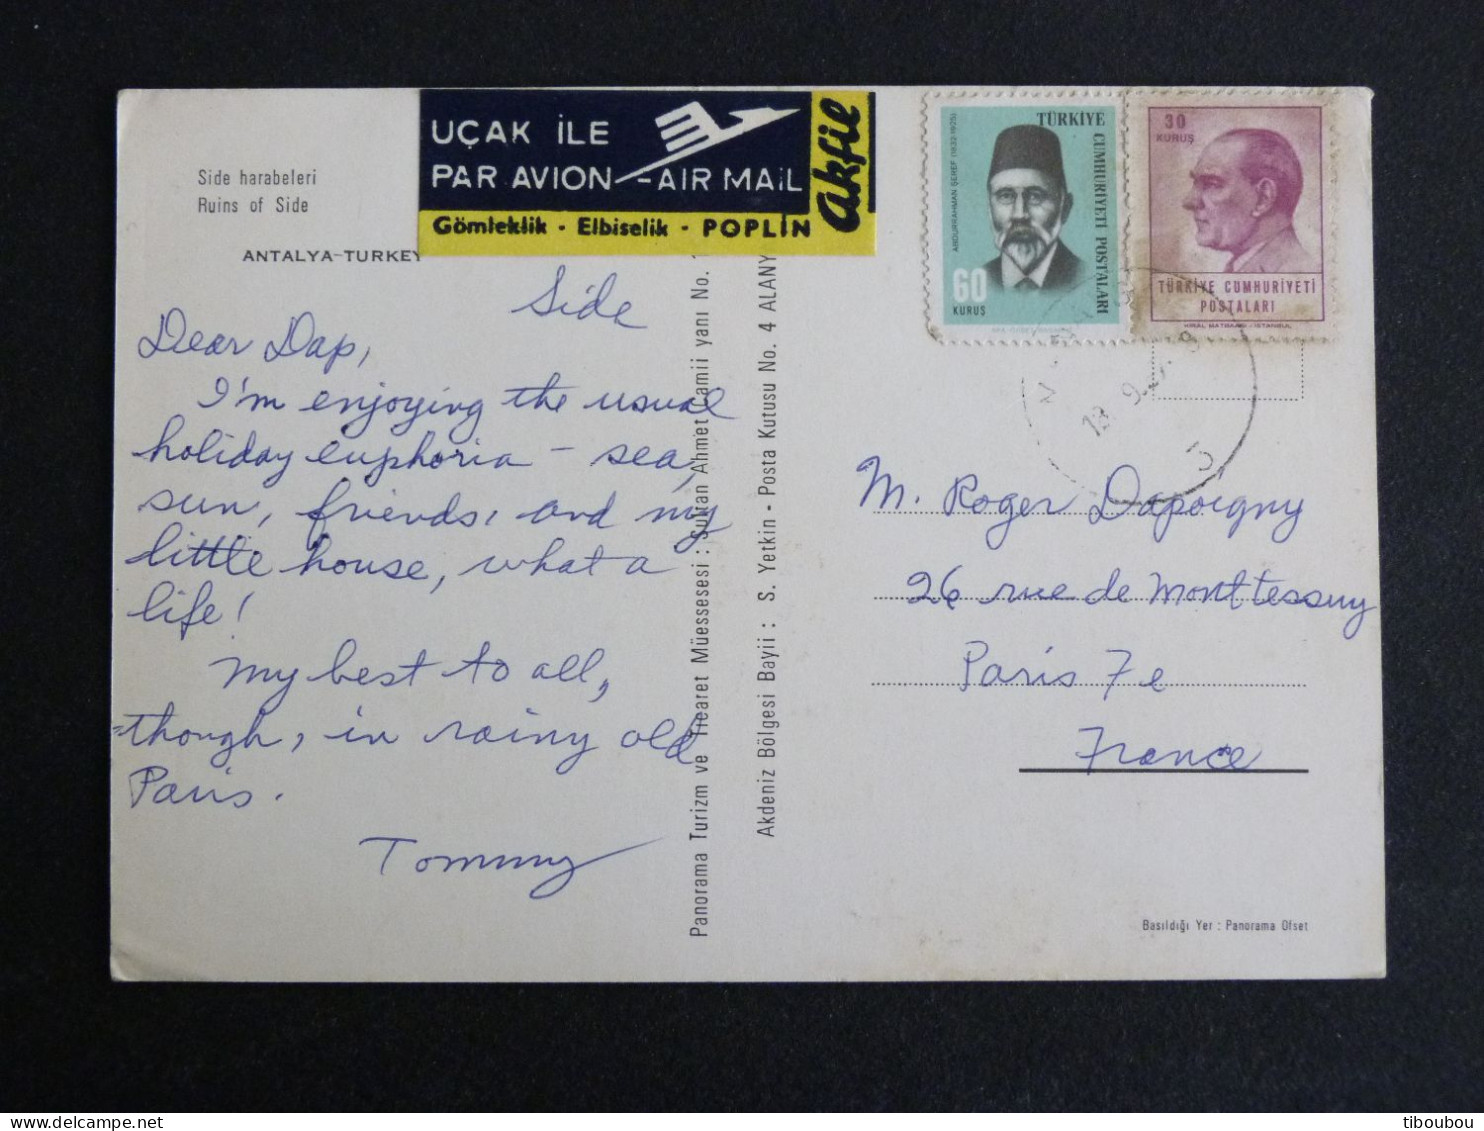 Side harabeleri
Ruins of Side
ANTALYA-TURKEY
UÇAK İLE
PAR AVION - AIR MAIL
Gömleklik - Elbiselik - POPLİN
akfil
Side
Dear Dap,
I'm enjoying the usual
holiday euphoria - sea,
sun, friends, and my
little house, what a
life!
My best to all,
though, in rainy old
Paris.
Tommy
Panorama Turizm ve Ticaret Müessesesi : Sultan Ahmet Camii yanı No. 1
Akdeniz Bölgesi Bayii : S. Yetkin - Posta Kutusu No. 4 ALANY
TÜRKİYE CUMHURİYETİ POSTALARI
ABDURRAHMAN ŞEREF (1832-1925)
60
KURUŞ
30
KURUŞ
TÜRKİYE CUMHURİYETİ
POSTALARI
M. Roger Dapoigny
26 rue de Monttessuy
Paris 7e
France
Basıldığı Yer : Panorama Ofset
tiboubou